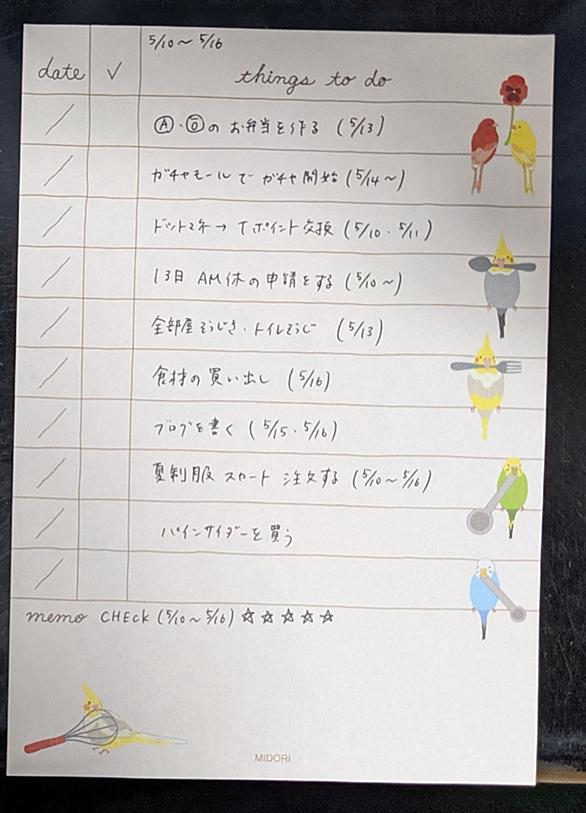 5/10～5/16
date ✓ things to do
/ Ⓐ・ⓞのお弁当を作る (5/13)
/ ガチャモールでガチャ開始 (5/14～)
/ ドットマネ→Tポイント交換 (5/10・5/11)
/ 13日 AM休の申請をする (5/10～)
/ 全部屋そうじき・トイレそうじ (5/13)
/ 食材の買い出し (5/16)
/ ブログを書く (5/15・5/16)
/ 夏制服 スカート 注文する (5/10～5/16)
/ パインサイダーを買う
/
memo CHECK (5/10～5/16) ☆☆☆☆☆
MIDORI